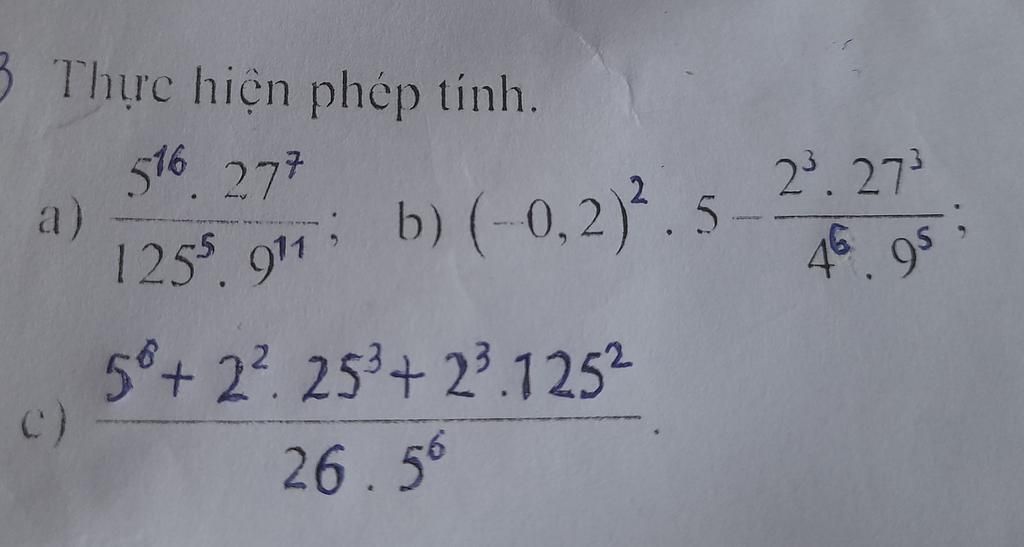 3 Thực hiện phép tính.
a) \frac{5^{16} . 27^7}{125^5 . 9^{11}}; b) (-0,2)^2 . 5 - \frac{2^3 . 27^3}{4^6 . 9^5};
c) \frac{5^6 + 2^2 . 25^3 + 2^3 . 125^2}{26 . 5^6}.